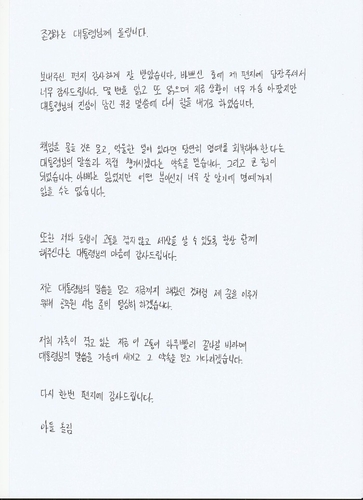 존경하는 대통령님께 올립니다.
보내주신 편지 감사하게 잘 받았습니다. 바쁘신 중에 제 편지에 답장주셔서
너무 감사드립니다. 몇 번을 읽고 또 읽으며 지금 상황이 너무 가슴 아팠지만
대통령님의 진심이 담긴 위로 말씀에 다시 힘을 내기로 하였습니다.
책임을 물을 것은 묻고, 억울한 일이 있다면 당연히 명예를 회복해야 한다는
대통령님의 말씀과 직접 챙기시겠다는 약속을 믿습니다. 그리고 큰 힘이
되었습니다. 아빠는 잃었지만 어떤 분이신지 너무 잘 알기에 명예까지
잃을 수는 없습니다.
또한 저와 동생이 고통을 겪지 않고 세상을 살 수 있도록 항상 함께
해주신다는 대통령님의 마음에 감사드립니다.
저는 대통령님의 말씀을 믿고 지금까지 해왔던 것처럼 제 꿈을 이루기
위해 공부와 시험 준비 열심히 하겠습니다.
저희 가족이 겪고 있는 지금 이 고통이 하루빨리 끝나길 바라며
대통령님의 말씀을 가슴에 새기고 그 약속을 믿고 기다리겠습니다.
다시 한번 편지에 감사드립니다.
아들 올림